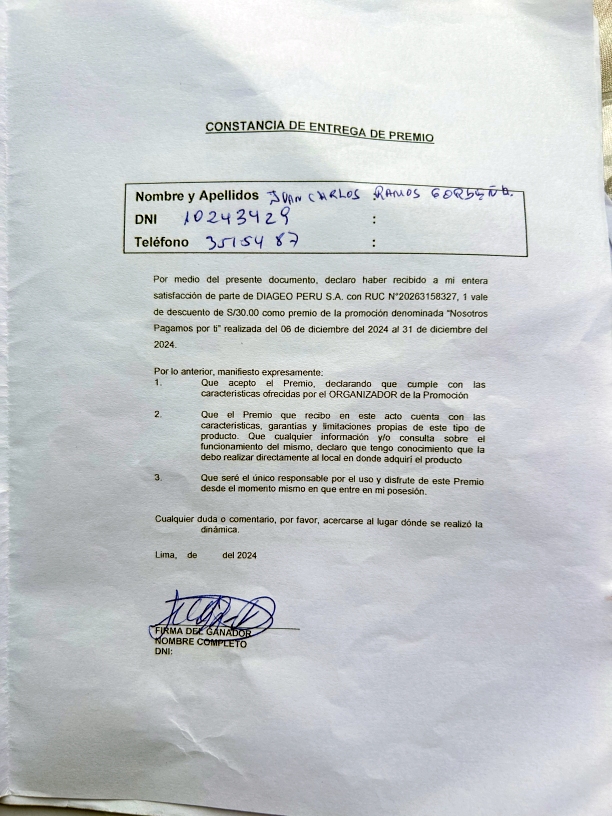 CONSTANCIA DE ENTREGA DE PREMIO
Nombre y Apellidos JUAN CARLOS : RAMOS
DNI 10243429 :
Teléfono 3515487 :
Por medio del presente documento, declaro haber recibido a mi entera
satisfacción de parte de DIAGEO PERU S.A. con RUC N°20263158327, 1 vale
de descuento de S/30.00 como premio de la promoción denominada "Nosotros
Pagamos por ti" realizada del 06 de diciembre del 2024 al 31 de diciembre del
2024.
Por lo anterior, manifiesto expresamente:
1. Que acepto el Premio, declarando que cumple con las
características ofrecidas por el ORGANIZADOR de la Promoción
2. Que el Premio que recibo en este acto cuenta con las
características, garantías y limitaciones propias de este tipo de
producto. Que cualquier información y/o consulta sobre el
funcionamiento del mismo, declaro que tengo conocimiento que la
debo realizar directamente al local en donde adquirí el producto
3. Que seré el único responsable por el uso y disfrute de este Premio
desde el momento mismo en que entre en mi posesión.
Cualquier duda o comentario, por favor, acercarse al lugar dónde se realizó la
dinámica.
Lima, de del 2024
FIRMA DEL GANADOR
NOMBRE COMPLETO
DNI: